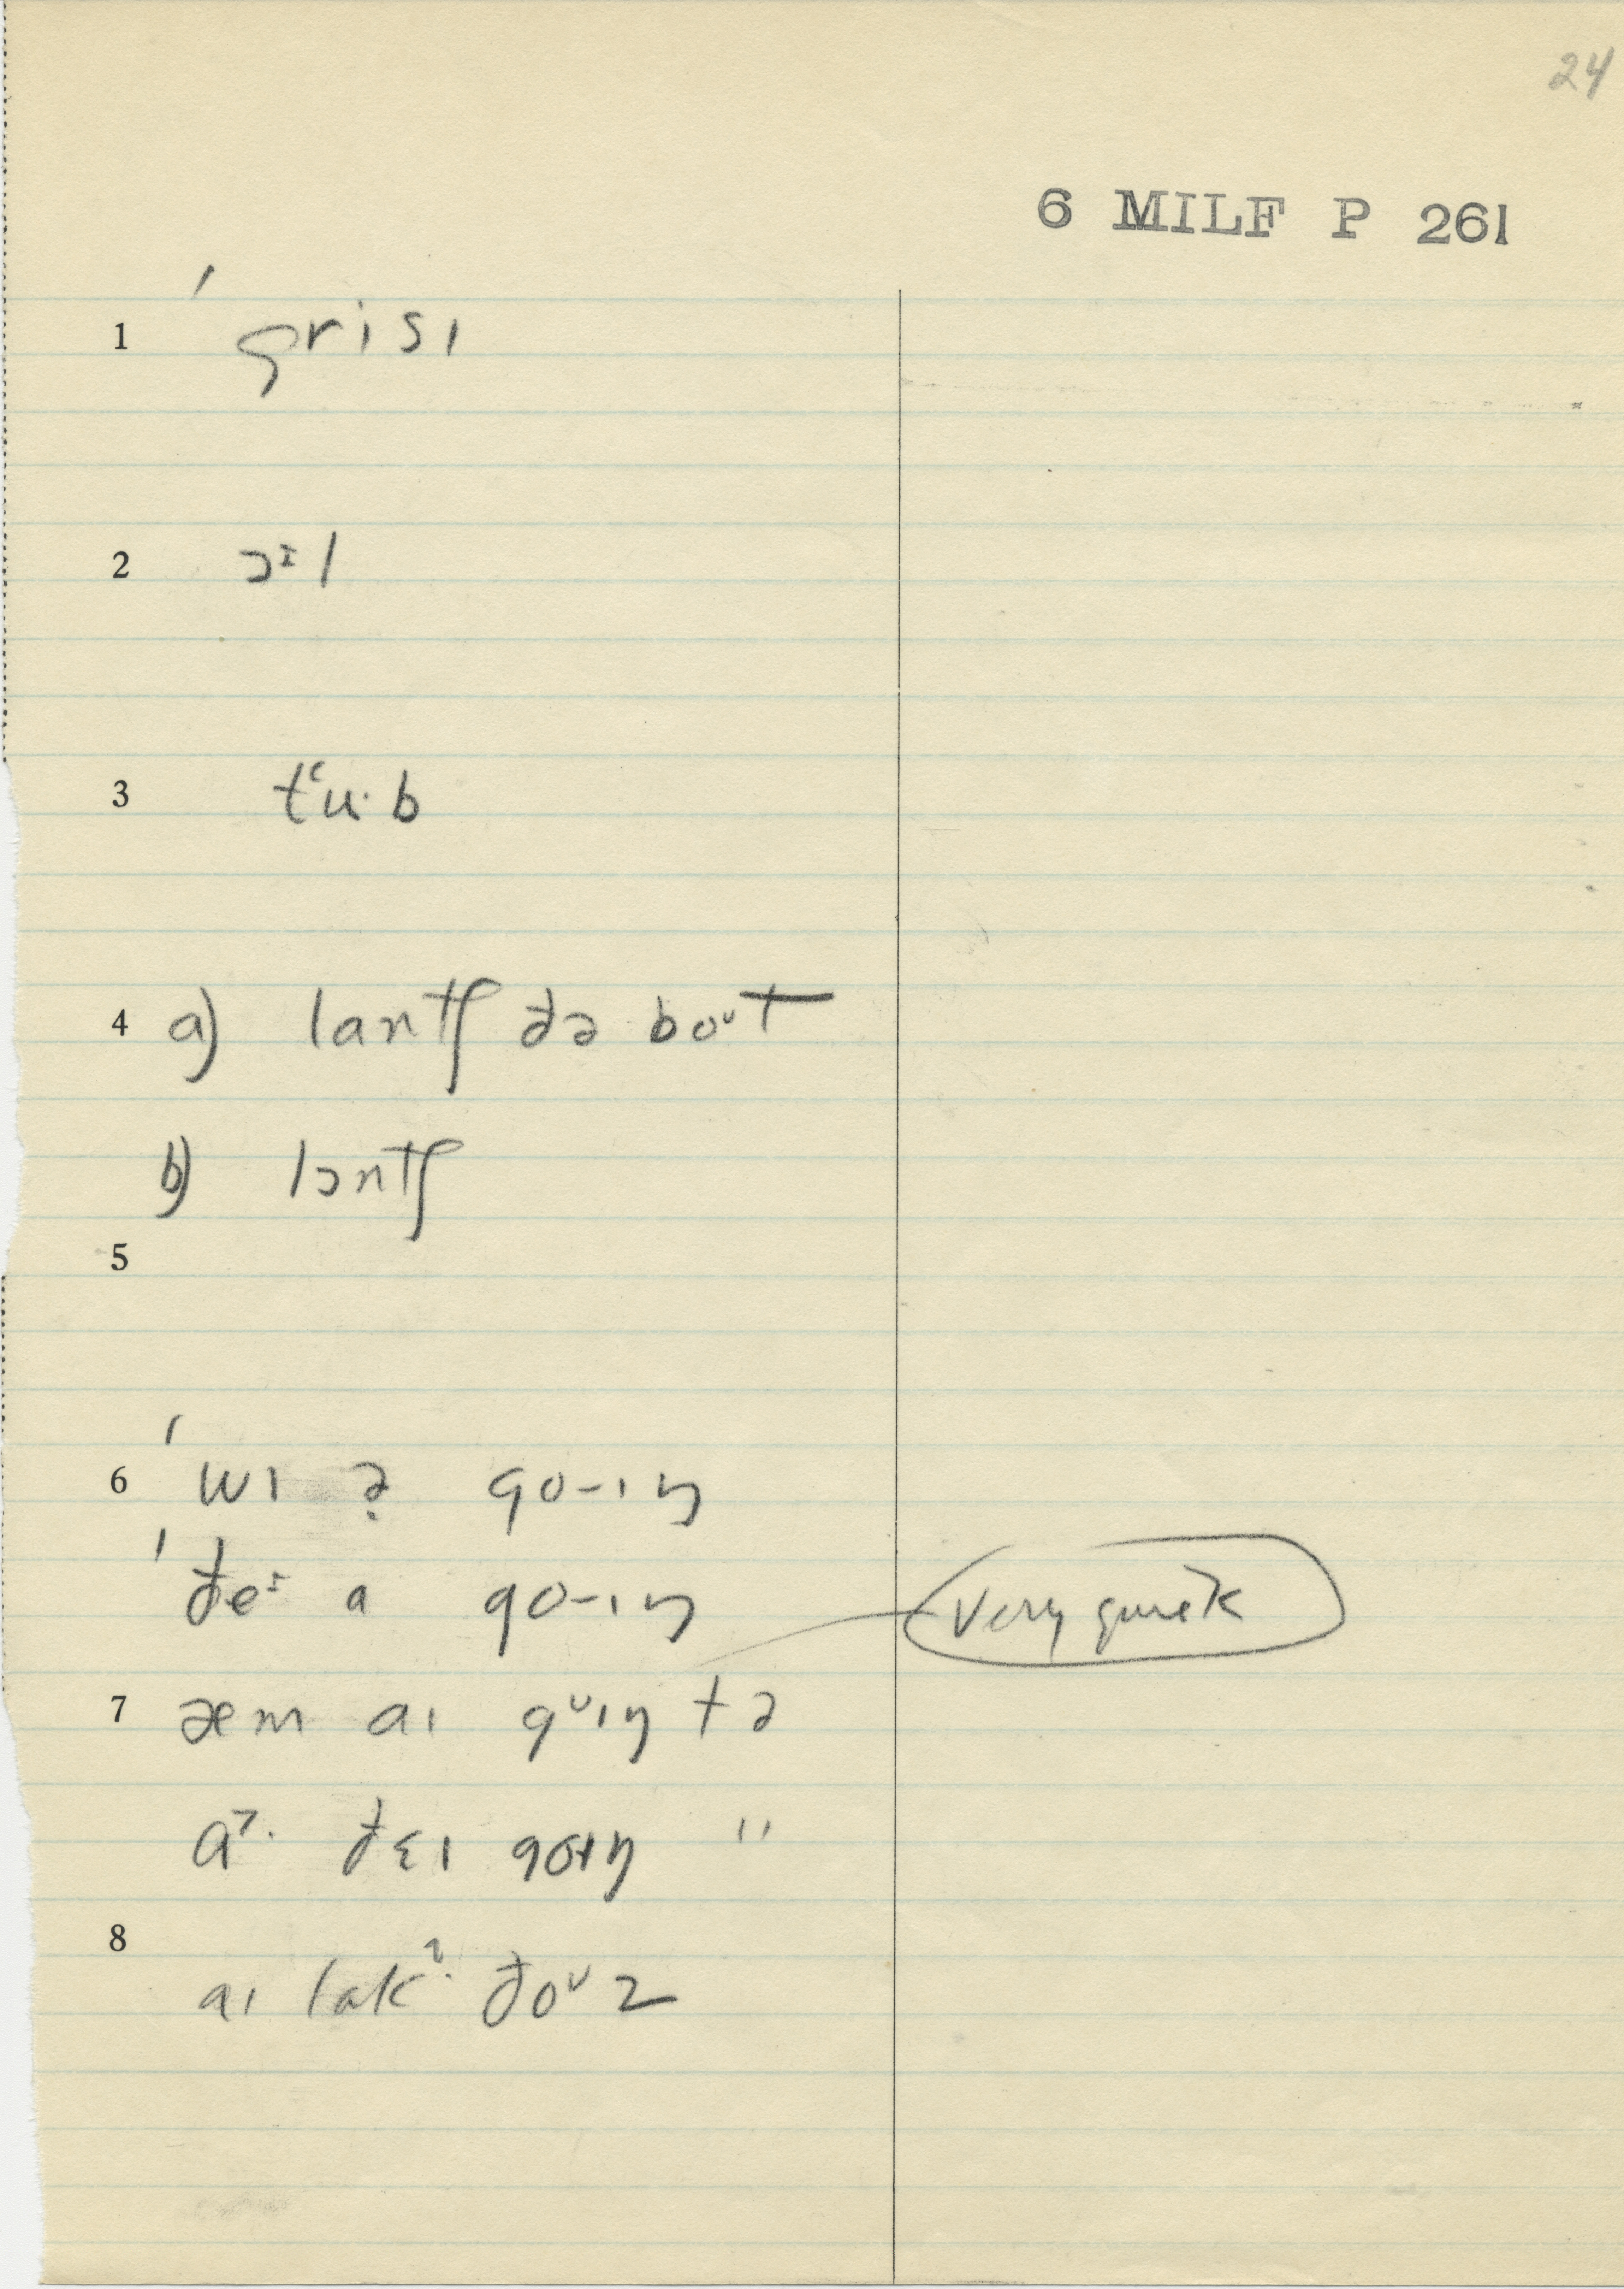 24
6 MILF P 261
1 ˈgrisɪ
2 ɔᶦl
3 tʻu·b
4 a) lantʃ ðə boᶷt
b) lɔntʃ
5
6 ˈwɪ ə̣ go-ɪŋ
ˈðeᶦ a go-ɪŋ very quick
7 æm aɪ gᶷɪŋ tə
a˃· ðɛɪ goɪŋ "
8
aɪ lakˀ· ðoᶷz